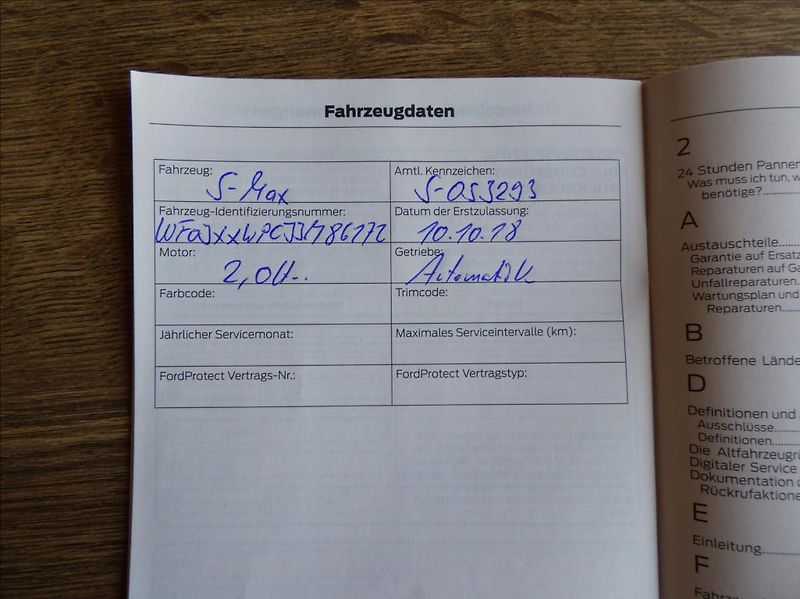 Fahrzeugdaten
Fahrzeug:
S-Max
Amtl. Kennzeichen:
S-OS3293
Fahrzeug-Identifizierungsnummer:
Datum der Erstzulassung:
10.10.18
Motor:
Getriebe:
Automatik
Farbcode:
Trimcode:
Jährlicher Servicemonat:
Maximales Serviceintervalle (km):
FordProtect Vertrags-Nr.:
FordProtect Vertragstyp:
2
24 Stunden Pannen
Was muss ich tun, w
benötige?
A
Austauschteile
Garantie auf Ersatz
Reparaturen auf Ga
Unfallreparaturen
Wartungsplan und
Reparaturen
B
Betroffene Lände
D
Definitionen und
Ausschlüsse
Definitionen
Die Altfahrzeugr
Digitaler Service
Dokumentation
Rückrufaktione
E
Einleitung
F